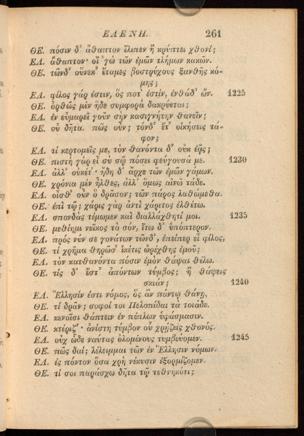 ΕΛΕΝΗ. 261
ΘΕ. πόσιν δ' ἄθαπτον ἔλιπεν ἢ κρύπτει χθονί;
ΕΛ. ἄθαπτον· οἲ 'γὼ τῶν ἐμῶν τλήμων κακῶν.
ΘΕ. τῶνδ' οὕνεκ' ἔταμες βοστρύχους ξανθῆς κό-
μης;
ΕΛ. φίλος γάρ ἐστιν, ὅς ποτ' ἐστίν, ἐνθάδ' ὤν. 1225
ΘΕ. ὀρθῶς μὲν ἥδε συμφορὰ δακρύεται;
ΕΛ. ἐν εὐμαρεῖ γοῦν σὴν κασιγνήτην θανεῖν;
ΘΕ. οὐ δῆτα. πῶς οὖν; τόνδ' ἔτ' οἰκήσεις τά-
φον;
ΕΛ. τί κερτομεῖς με, τὸν θανόντα δ' οὐκ ἐᾷς;
ΘΕ. πιστὴ γὰρ εἶ σὺ σῷ πόσει φεύγουσά με. 1230
ΕΛ. ἀλλ' οὐκέτ'· ἤδη δ' ἄρχε τῶν ἐμῶν γάμων.
ΘΕ. χρόνια μὲν ἦλθεν, ἀλλ' ὅμως αἰνῶ τάδε.
ΕΛ. οἶσθ' οὖν ὃ δρᾶσον; τῶν πάρος λαθώμεθα.
ΘΕ. ἐπὶ τῷ; χάρις γὰρ ἀντὶ χάριτος ἐλθέτω.
ΕΛ. σπονδὰς τέμωμεν καὶ διαλλάχθητί μοι. 1235
ΘΕ. μεθίημι νεῖκος τὸ σόν, ἴτω δ' ὑπόπτερον.
ΕΛ. πρός νύν σε γονάτων τῶνδ', ἐπείπερ εἶ φίλος,
ΘΕ. τί χρῆμα θηρῶσ' ἱκέτις ὠρέχθης ἐμοῦ;
ΕΛ. τὸν κατθανόντα πόσιν ἐμὸν θάψαι θέλω.
ΘΕ. τίς δ' ἔστ' ἀπόντων τύμβος; ἢ θάψεις
σκιάν; 1240
ΕΛ. Ἕλλησίν ἐστι νόμος, ὃς ἂν πόντῳ θάνῃ,
ΘΕ. τί δρᾶν; σοφοί τοι Πελοπίδαι τὰ τοιάδε.
ΕΛ. κενοῖσι θάπτειν ἐν πέπλων ὑφάσμασιν.
ΘΕ. κτέριζ'· ἀνίστη τύμβον οὗ χρῄζεις χθονός.
ΕΛ. οὐχ ὧδε ναύτας ὀλομένους τυμβεύομεν. 1245
ΘΕ. πῶς δαί; λέλειμμαι τῶν ἐν Ἕλλησιν νόμων.
ΕΛ. ἐς πόντον ὅσα χρὴ νέκυσιν ἐξορμίζομεν.
ΘΕ. τί σοι παράσχω δῆτα τῷ τεθνηκότι;